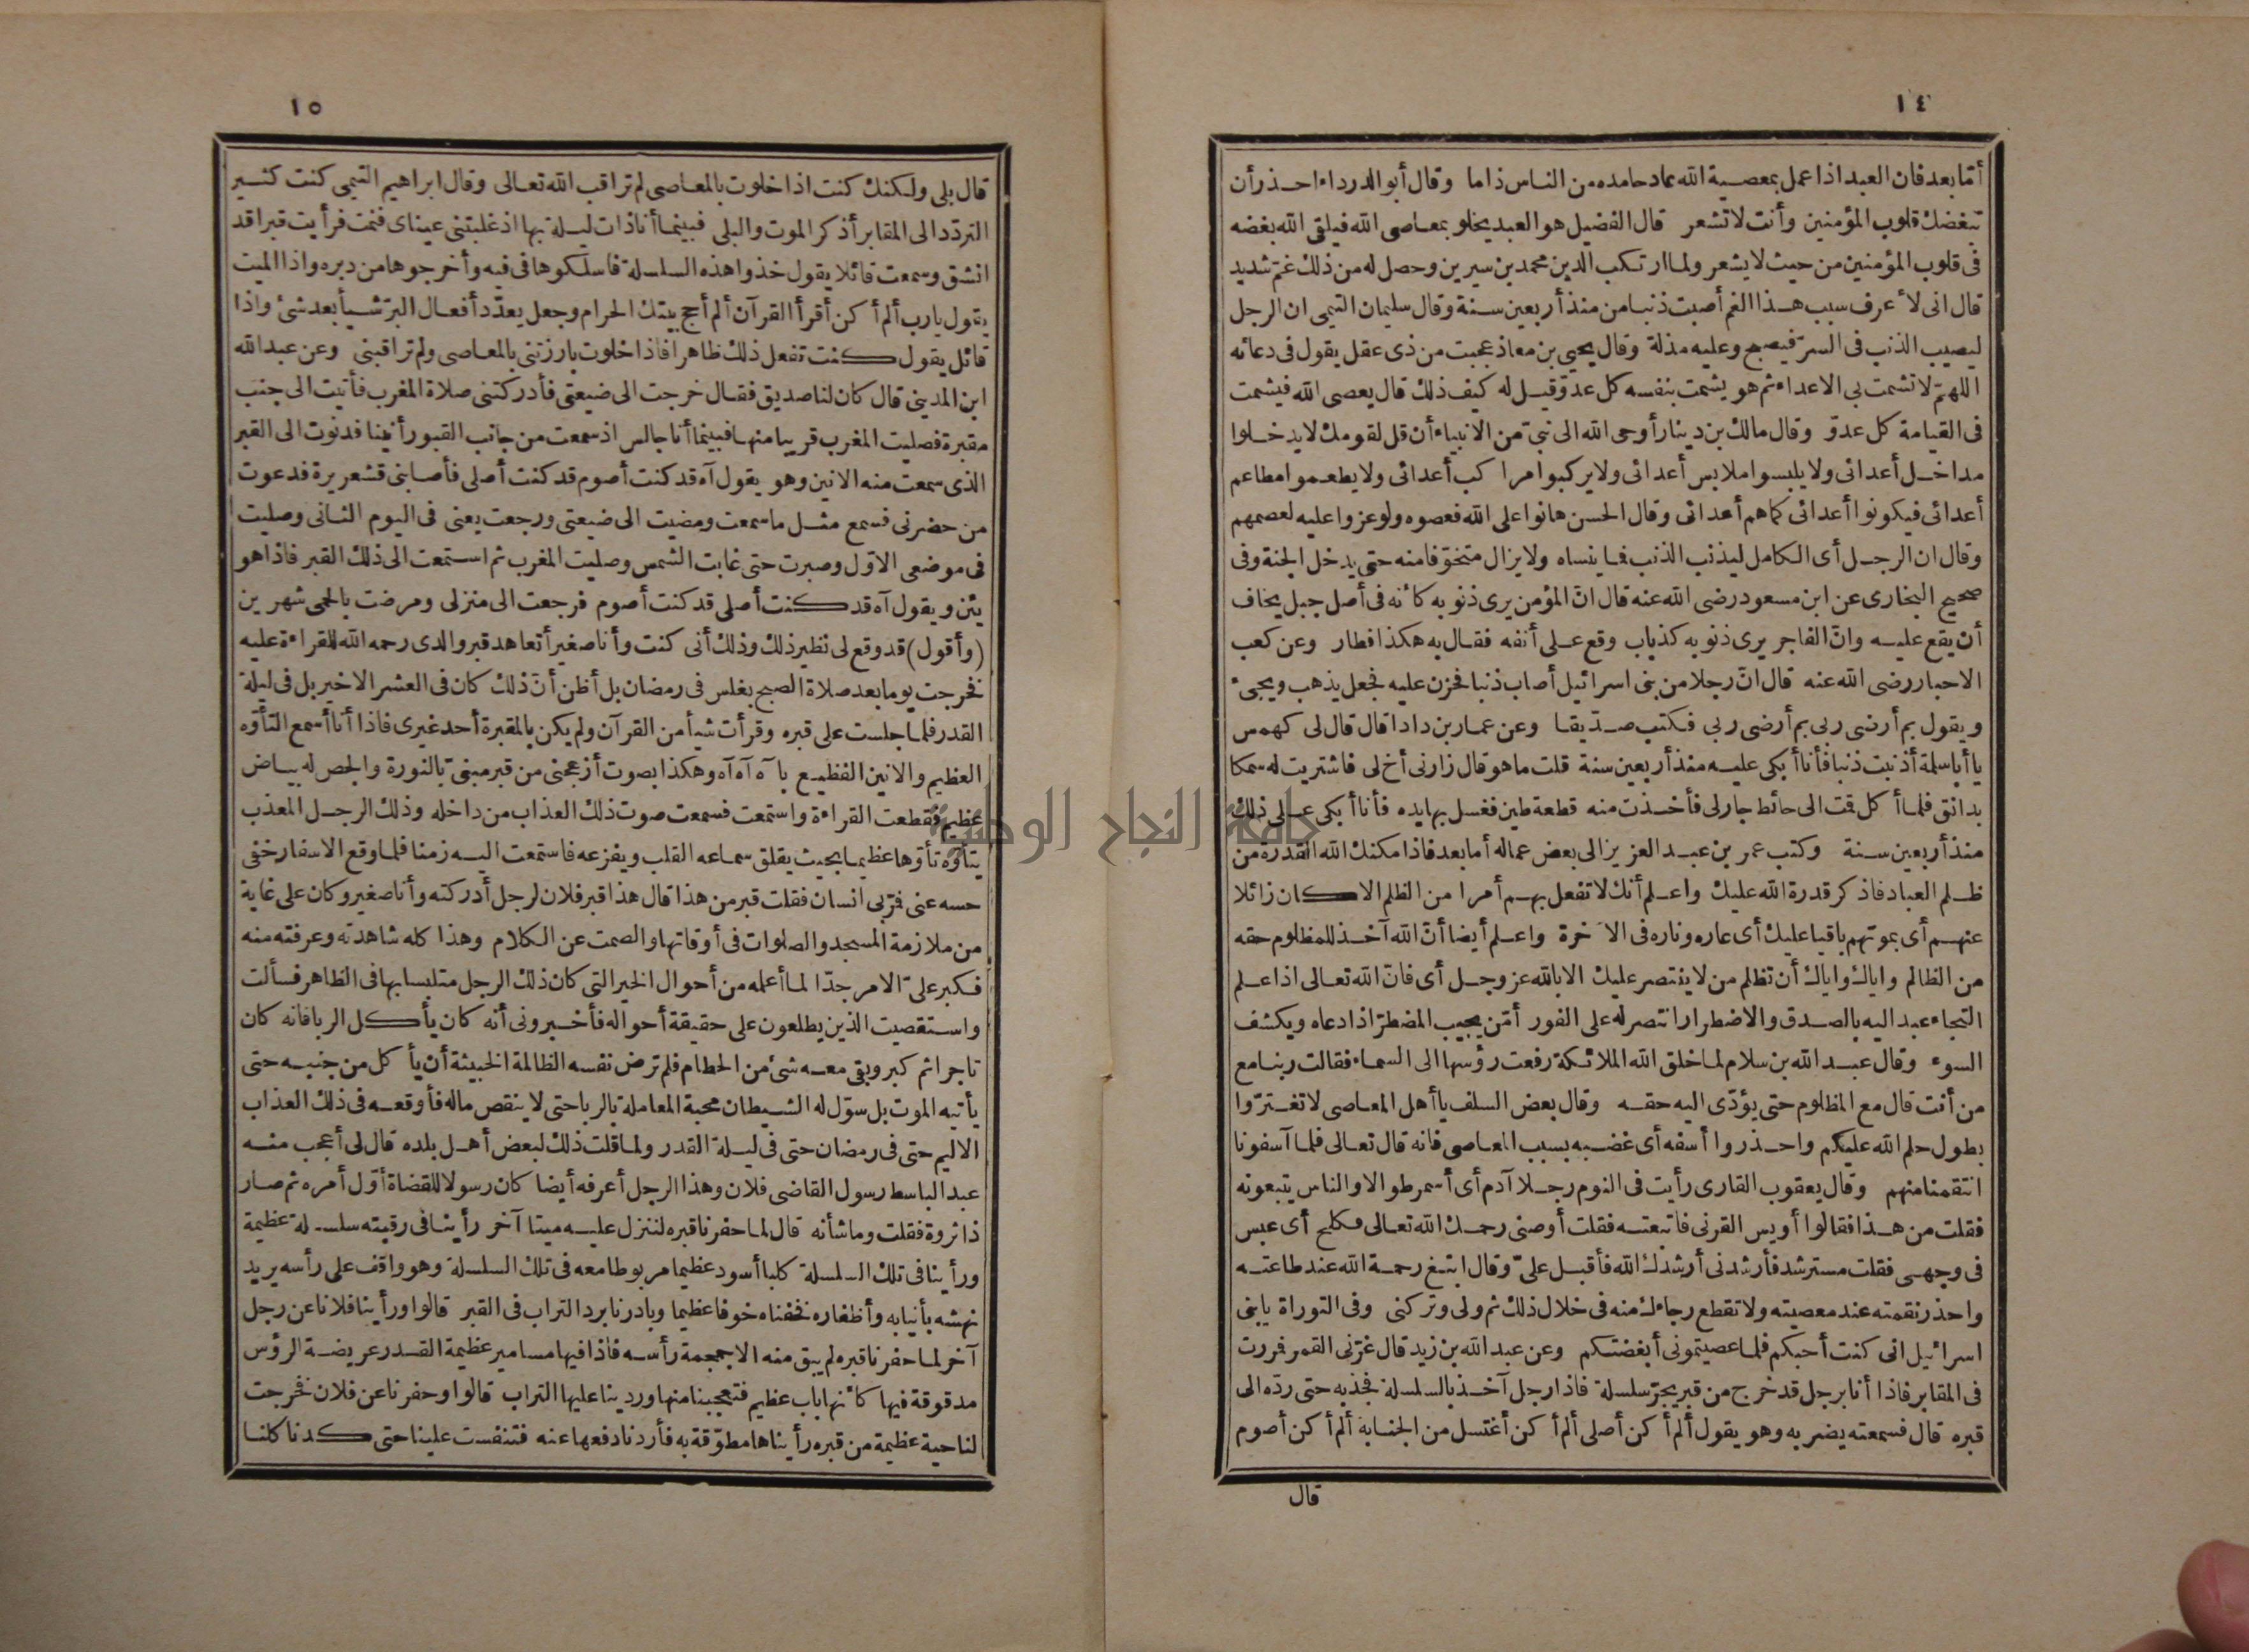 ١٤
أمّا بعد فان العبد اذا عمل بمعصية الله عاد حامده من الناس ذاما وقال أبو الدرداء احذر أن
تبغضك قلوب المؤمنين وأنت لا تشعر قال الفضيل هو العبد يخلو بمعاصى الله فيلقى الله بغضه
فى قلوب المؤمنين من حيث لا يشعر ولما ارتكب الدين محمد بن سيرين وحصل له من ذلك غم شديد
قال انى لأعرف سبب هذا الغم أصبت ذنبا من منذ أربعين سنة وقال سليمان التيمى ان الرجل
ليصيب الذنب فى السرّ فيصبح وعليه مذلة وقال يحيى بن معاذ عجبت من ذى عقل يقول فى دعائه
اللهمّ لا تشمت بى الاعداء ثم هو يشمت بنفسه كل عدوّ قيل له كيف ذلك قال يعصى الله فيشمت
فى القيامة كل عدوّ وقال مالك بن دينار أوحى الله الى نبىّ من الانبياء أن قل لقومك لا يدخلوا
مداخل أعدائى ولا يلبسوا ملابس أعدائى ولا يركبوا مراكب أعدائى ولا يطعموا مطاعم
أعدائى فيكونوا أعدائى كما هم أعدائى وقال الحسن هانوا على الله فعصوه ولو عزوا عليه لعصمهم
وقال ان الرجل أى الكامل ليذنب الذنب فما ينساه ولا يزال متخوّفا منه حتى يدخل الجنة وفى
صحيح البخارى عن ابن مسعود رضى الله عنه قال انّ المؤمن يرى ذنوبه كأنه فى أصل جبل يخاف
أن يقع عليه وانّ الفاجر يرى ذنوبه كذباب وقع على أنفه فقال به هكذا فطار وعن كعب
الاحبار رضى الله عنه قال انّ رجلا من بنى اسرائيل أصاب ذنبا فحزن عليه فجعل يذهب ويجىء
ويقول بم أرضى ربى بم أرضى ربى فكتب صدّيقا وعن عمار بن دادا قال قال لى كهمس
يا أبا سلمة أذنبت ذنبا فأنا أبكى عليه منذ أربعين سنة قلت ما هو قال زارنى أخ لى فاشتريت له سمكا
بدانق فلما أكل قمت الى حائط جار لى فأخذت منه قطعة طين فغسل بها يده فأنا أبكى على ذلك
منذ أربعين سنة وكتب عمر بن عبد العزيز الى بعض عماله أما بعد فاذا مكنك الله القدرة من
ظلم العباد فاذكر قدرة الله عليك واعلم أنك لا تفعل بهم أمرا من الظلم الا كان زائلا
عنهم أى بموتهم باقيا عليك أى عاره وناره فى الآخرة واعلم أيضا أنّ الله آخذ للمظلوم حقه
من الظالم واياك واياك أن تظلم من لا ينتصر عليك الا بالله عز وجل أى فانّ الله تعالى اذا علم
التجاء عبد اليه بالصدق والاضطرار انتصر له على الفور أمّن يجيب المضطرّ اذا دعاه ويكشف
السوء وقال عبد الله بن سلام لما خلق الله الملائكة رفعت رؤسها الى السماء فقالت ربنا مع
من أنت قال مع المظلوم حتى يؤدّى اليه حقه وقال بعض السلف يا أهل المعاصى لا تغترّوا
بطول حلم الله عليكم واحذروا أسفه أى غضبه بسبب المعاصى فانه قال تعالى فلما آسفونا
انتقمنا منهم وقال يعقوب القارى رأيت فى النوم رجلا آدم أى أسمر طوالا والناس يتبعونه
فقلت من هذا فقالوا أويس القرنى فاتبعته فقلت أوصنى رحمك الله تعالى فكلح أى عبس
فى وجهى فقلت مسترشد فأرشدنى أرشدك الله فأقبل علىّ وقال ابتغ رحمة الله عند طاعته
واحذر نقمته عند معصيته ولا تقطع رجاءك منه فى خلال ذلك ثم ولى وتركنى وفى التوراة يا بنى
اسرائيل انى كنت أحبكم فلما عصيتمونى أبغضتكم وعن عبد الله بن زيد قال غرّنى القمر فررت
فى المقابر فاذا أنا برجل قد خرج من قبر يجرّ سلسلة فاذا رجل آخذ بالسلسلة فجذبه حتى ردّه الى
قبره قال فسمعته يضربه وهو يقول ألم أكن أصلى ألم أكن أغتسل من الجنابة ألم أكن أصوم
قال
١٥
قال بلى ولكنك كنت اذا خلوت بالمعاصى لم تراقب الله تعالى وقال ابراهيم التيمى كنت كثير
التردّد الى المقابر أذكر الموت والبلى فبينما أنا ذات ليلة بها اذ غلبتنى عيناى فنمت فرأيت قبرا قد
انشق وسمعت قائلا يقول خذوا هذه السلسلة فاسلكوها فى فيه وأخرجوها من دبره واذا الميت
يقول يا رب ألم أكن أقرأ القرآن ألم أحج بيتك الحرام وجعل يعدّد أفعال البرّ شيأ بعد شئ واذا
قائل يقول كنت تفعل ذلك ظاهرا فاذا خلوت بارزتنى بالمعاصى ولم تراقبنى وعن عبد الله
ابن المدينى قال كان لنا صديق فقال خرجت الى ضيعتى فأدركتنى صلاة المغرب فأتيت الى جنب
مقبرة فصليت المغرب قريبا منها فبينما أنا جالس اذ سمعت من جانب القبور أنينا فدنوت الى القبر
الذى سمعت منه الانين وهو يقول آه قد كنت أصوم قد كنت أصلى فأصابنى قشعريرة فدعوت
من حضرنى فسمع مثل ما سمعت ومضيت الى ضيعتى ورجعت يعنى فى اليوم الثانى وصليت
فى موضعى الاوّل وصبرت حتى غابت الشمس وصليت المغرب ثم استمعت الى ذلك القبر فاذا هو
يئن ويقول آه قد كنت أصلى قد كنت أصوم فرجعت الى منزلى ومرضت بالحمى شهرين
(وأقول) قد وقع لى نظير ذلك وذلك أنى كنت وأنا صغير أتعاهد قبر والدى رحمه الله للقراءة عليه
فخرجت يوما بعد صلاة الصبح بغلس فى رمضان بل أظن أنّ ذلك كان فى العشر الاخير بل فى ليلة
القدر فلما جلست على قبره وقرأت شيأ من القرآن ولم يكن بالمقبرة أحد غيرى فاذا أنا أسمع التأوّه
العظيم والانين الفظيع بآه آه آه وهكذا بصوت أزعجنى من قبر مبنىّ بالنورة والجص له بياض
عظيم فقطعت القراءة واستمعت فسمعت صوت ذلك العذاب من داخله وذلك الرجل المعذب
يتأوّه تأوّها عظيما بحيث يقلق سماعه القلب ويفزعه فاستمعت اليه زمنا فلما وقع الاسفار خفى
حسه عنى فمرّ بى انسان فقلت قبر من هذا قال هذا قبر فلان لرجل أدركته وأنا صغير وكان على غاية
من ملازمة المسجد والصلوات فى أوقاتها والصمت عن الكلام وهذا كله شاهدته وعرفته منه
فكبر علىّ الامر جدّا لما أعلمه من أحوال الخير التى كان ذلك الرجل متلبسا بها فى الظاهر فسألت
واستقصيت الذين يطلعون على حقيقة أحواله فأخبرونى أنه كان يأكل الربا فانه كان
تاجرا ثم كبر وبقى معه شئ من الحطام فلم ترض نفسه الظالمة الخبيثة أن يأكل من جنبه حتى
يأتيه الموت بل سوّل له الشيطان محبة المعاملة بالربا حتى لا ينقص ماله فأوقعه فى ذلك العذاب
الاليم حتى فى رمضان حتى فى ليلة القدر ولما قلت ذلك لبعض أهل بلده قال لى أعجب منه
عبد الباسط رسول القاضى فلان وهذا الرجل أعرفه أيضا كان رسولا للقضاة أوّل أمره ثم صار
ذا ثروة فقلت وما شأنه قال لما حفرنا قبره لننزل عليه ميتا آخر رأينا فى رقبته سلسلة عظيمة
ورأينا فى تلك السلسلة كلبا أسود عظيما مربوطا معه فى تلك السلسلة وهو واقف على رأسه يريد
نهشه بأنيابه وأظفاره فخفناه خوفا عظيما وبادرنا برد التراب فى القبر قالوا ورأينا فلانا عن رجل
آخر لما حفرنا قبره لم يبق منه الا جمجمة رأسه فاذا فيها مسامير عظيمة القدر عريضة الرؤس
مدقوقة فيها كأنها باب عظيم فتعجبنا منها ورددينا عليها التراب قالوا وحفرنا عن فلان فخرجت
لنا حية عظيمة من قبره رأيناها مطوّقة به فأردنا دفعها عنه فتنفست علينا حتى كدنا كلنا
جامعة النجاح الوطنية